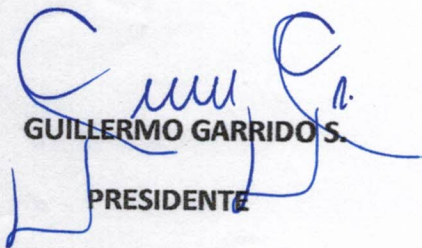 GUILLERMO GARRIDO S.
PRESIDENTE